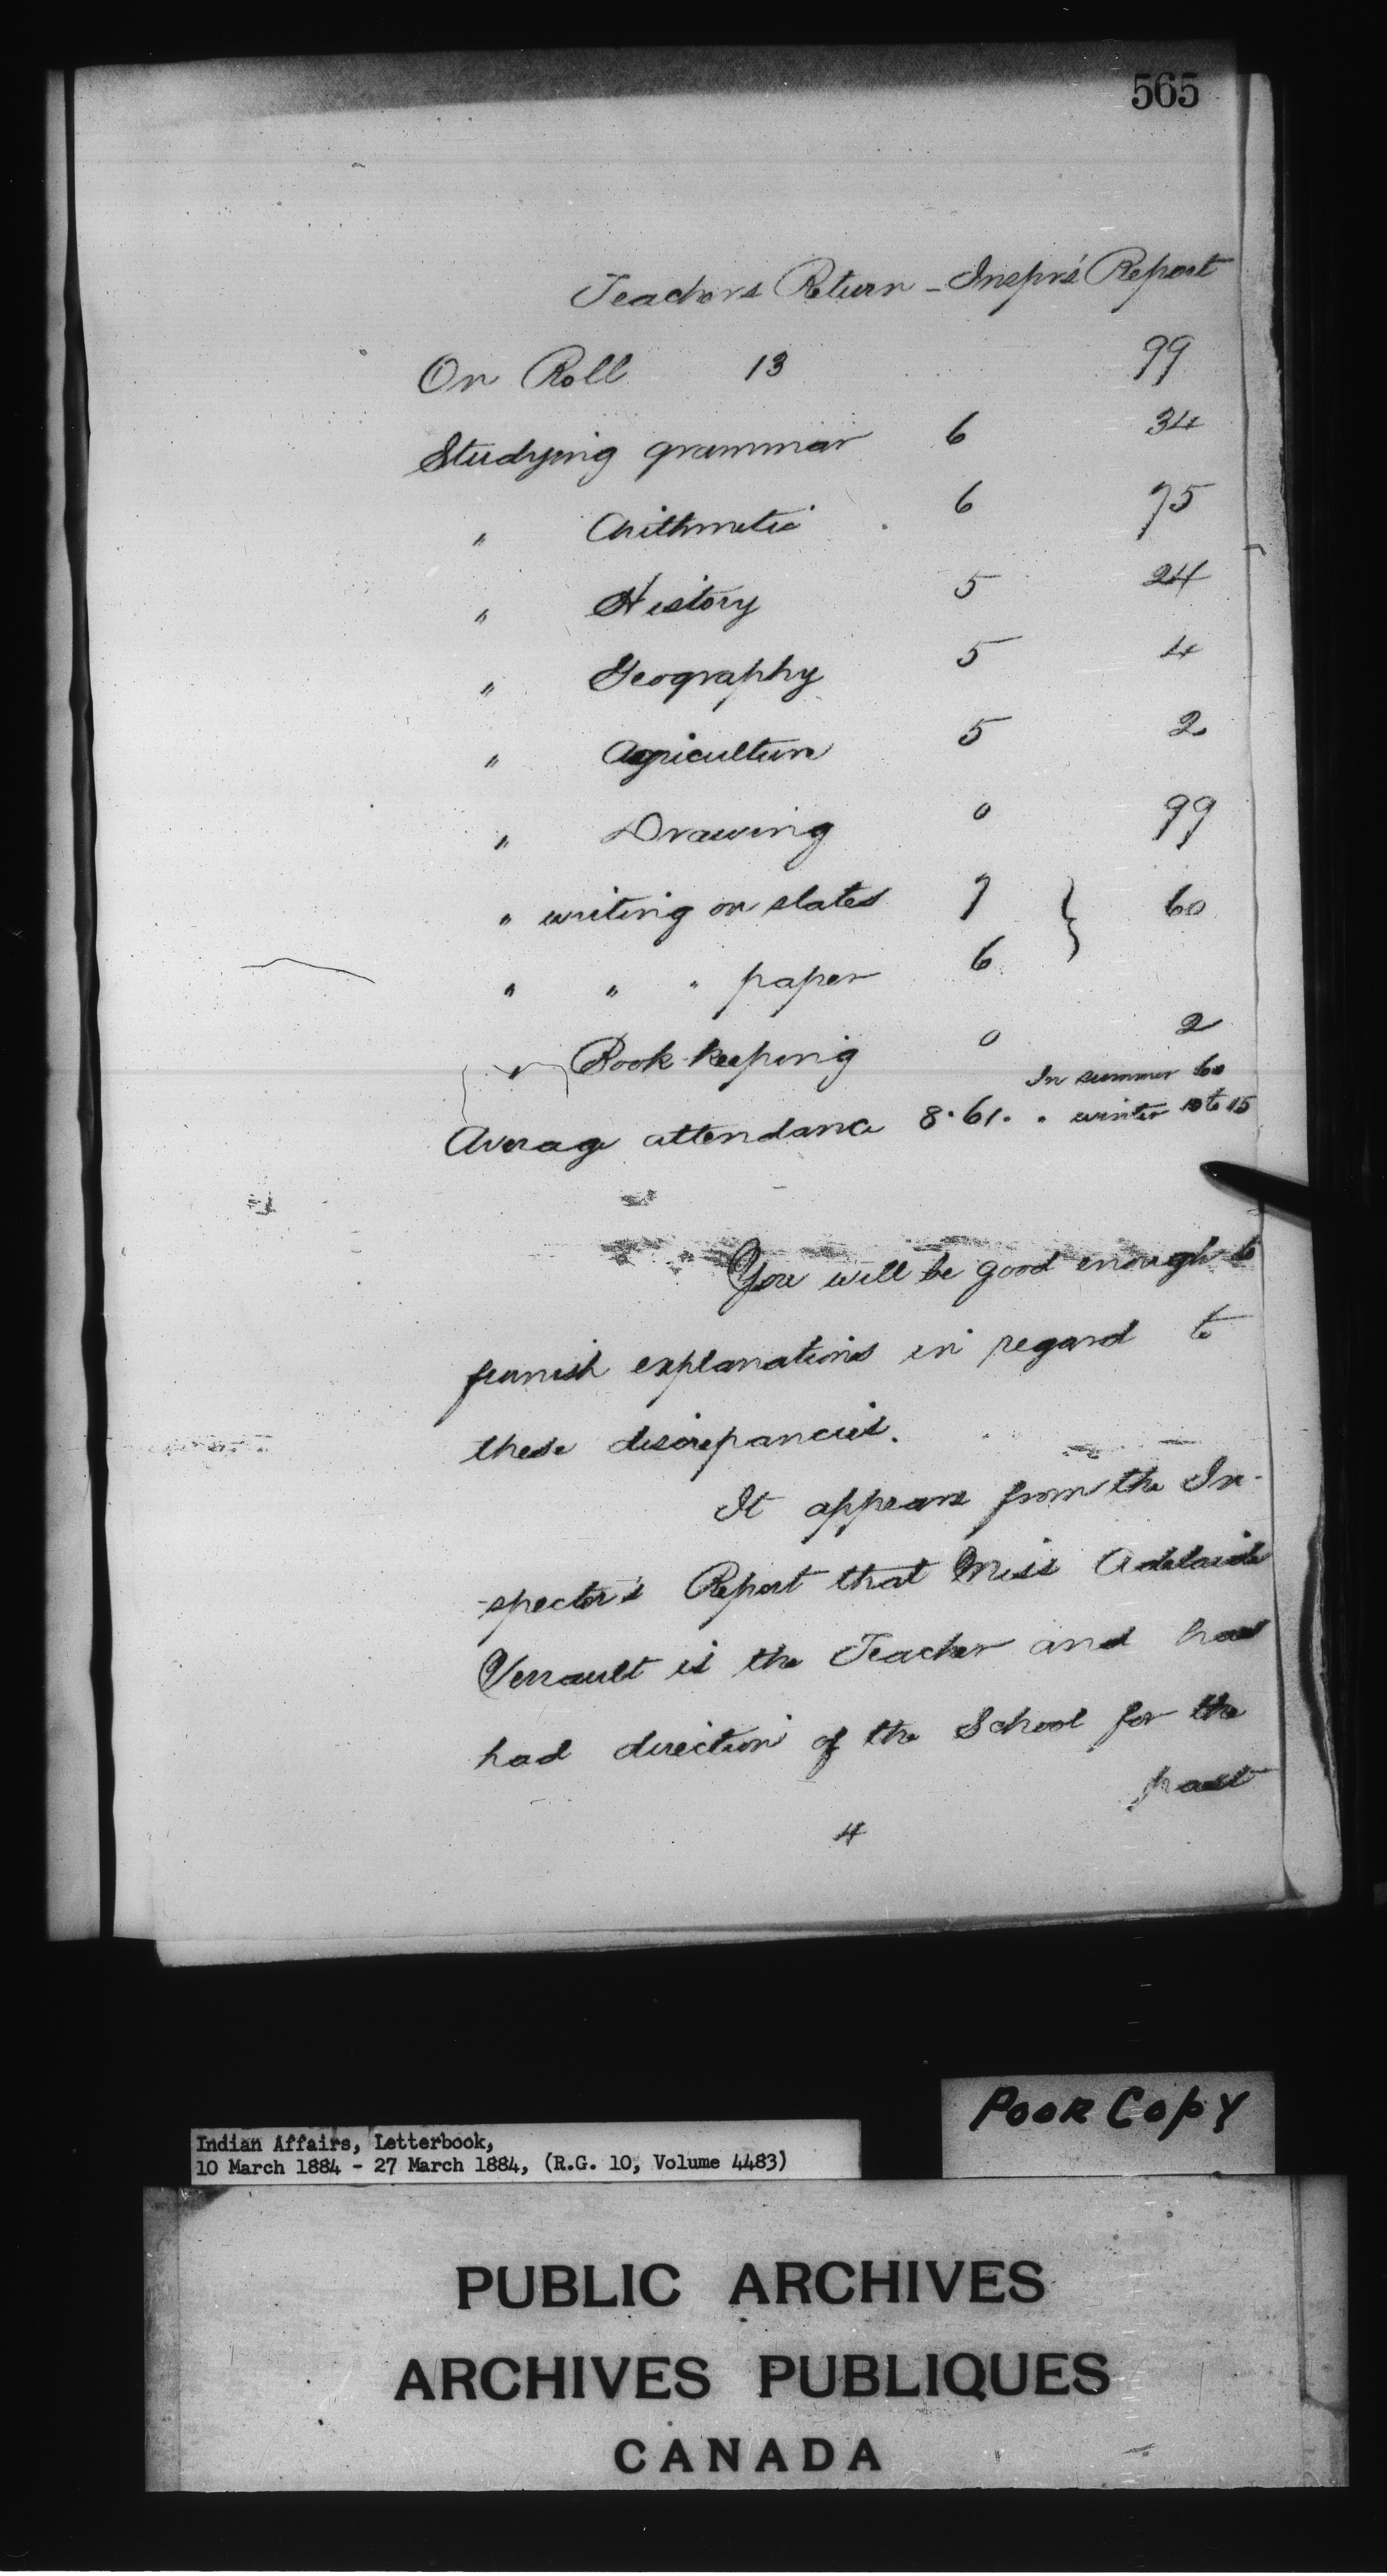 565
Teachers Return - Inspr's Report
On Roll 13 99
Studying grammar 6 34
" Arithmetic 6 75
" History 5 24
" Geography 5 4
" Agriculture 5 2
" Drawing 0 99
" writing on slates 7 } 60
" " " paper 6
" Book-keeping 0 2
In summer 60
Average attendance 8.61. " winter 10 to 15
You will be good enough to
furnish explanations in regard to
these discrepancies.
It appears from the In-
-spector's Report that Miss Adelaide
Verrault is the Teacher and has
had direction of the School for the
past
4
Poor Copy
Indian Affairs, Letterbook,
10 March 1884 - 27 March 1884, (R.G. 10, Volume 4483)
PUBLIC ARCHIVES
ARCHIVES PUBLIQUES
CANADA